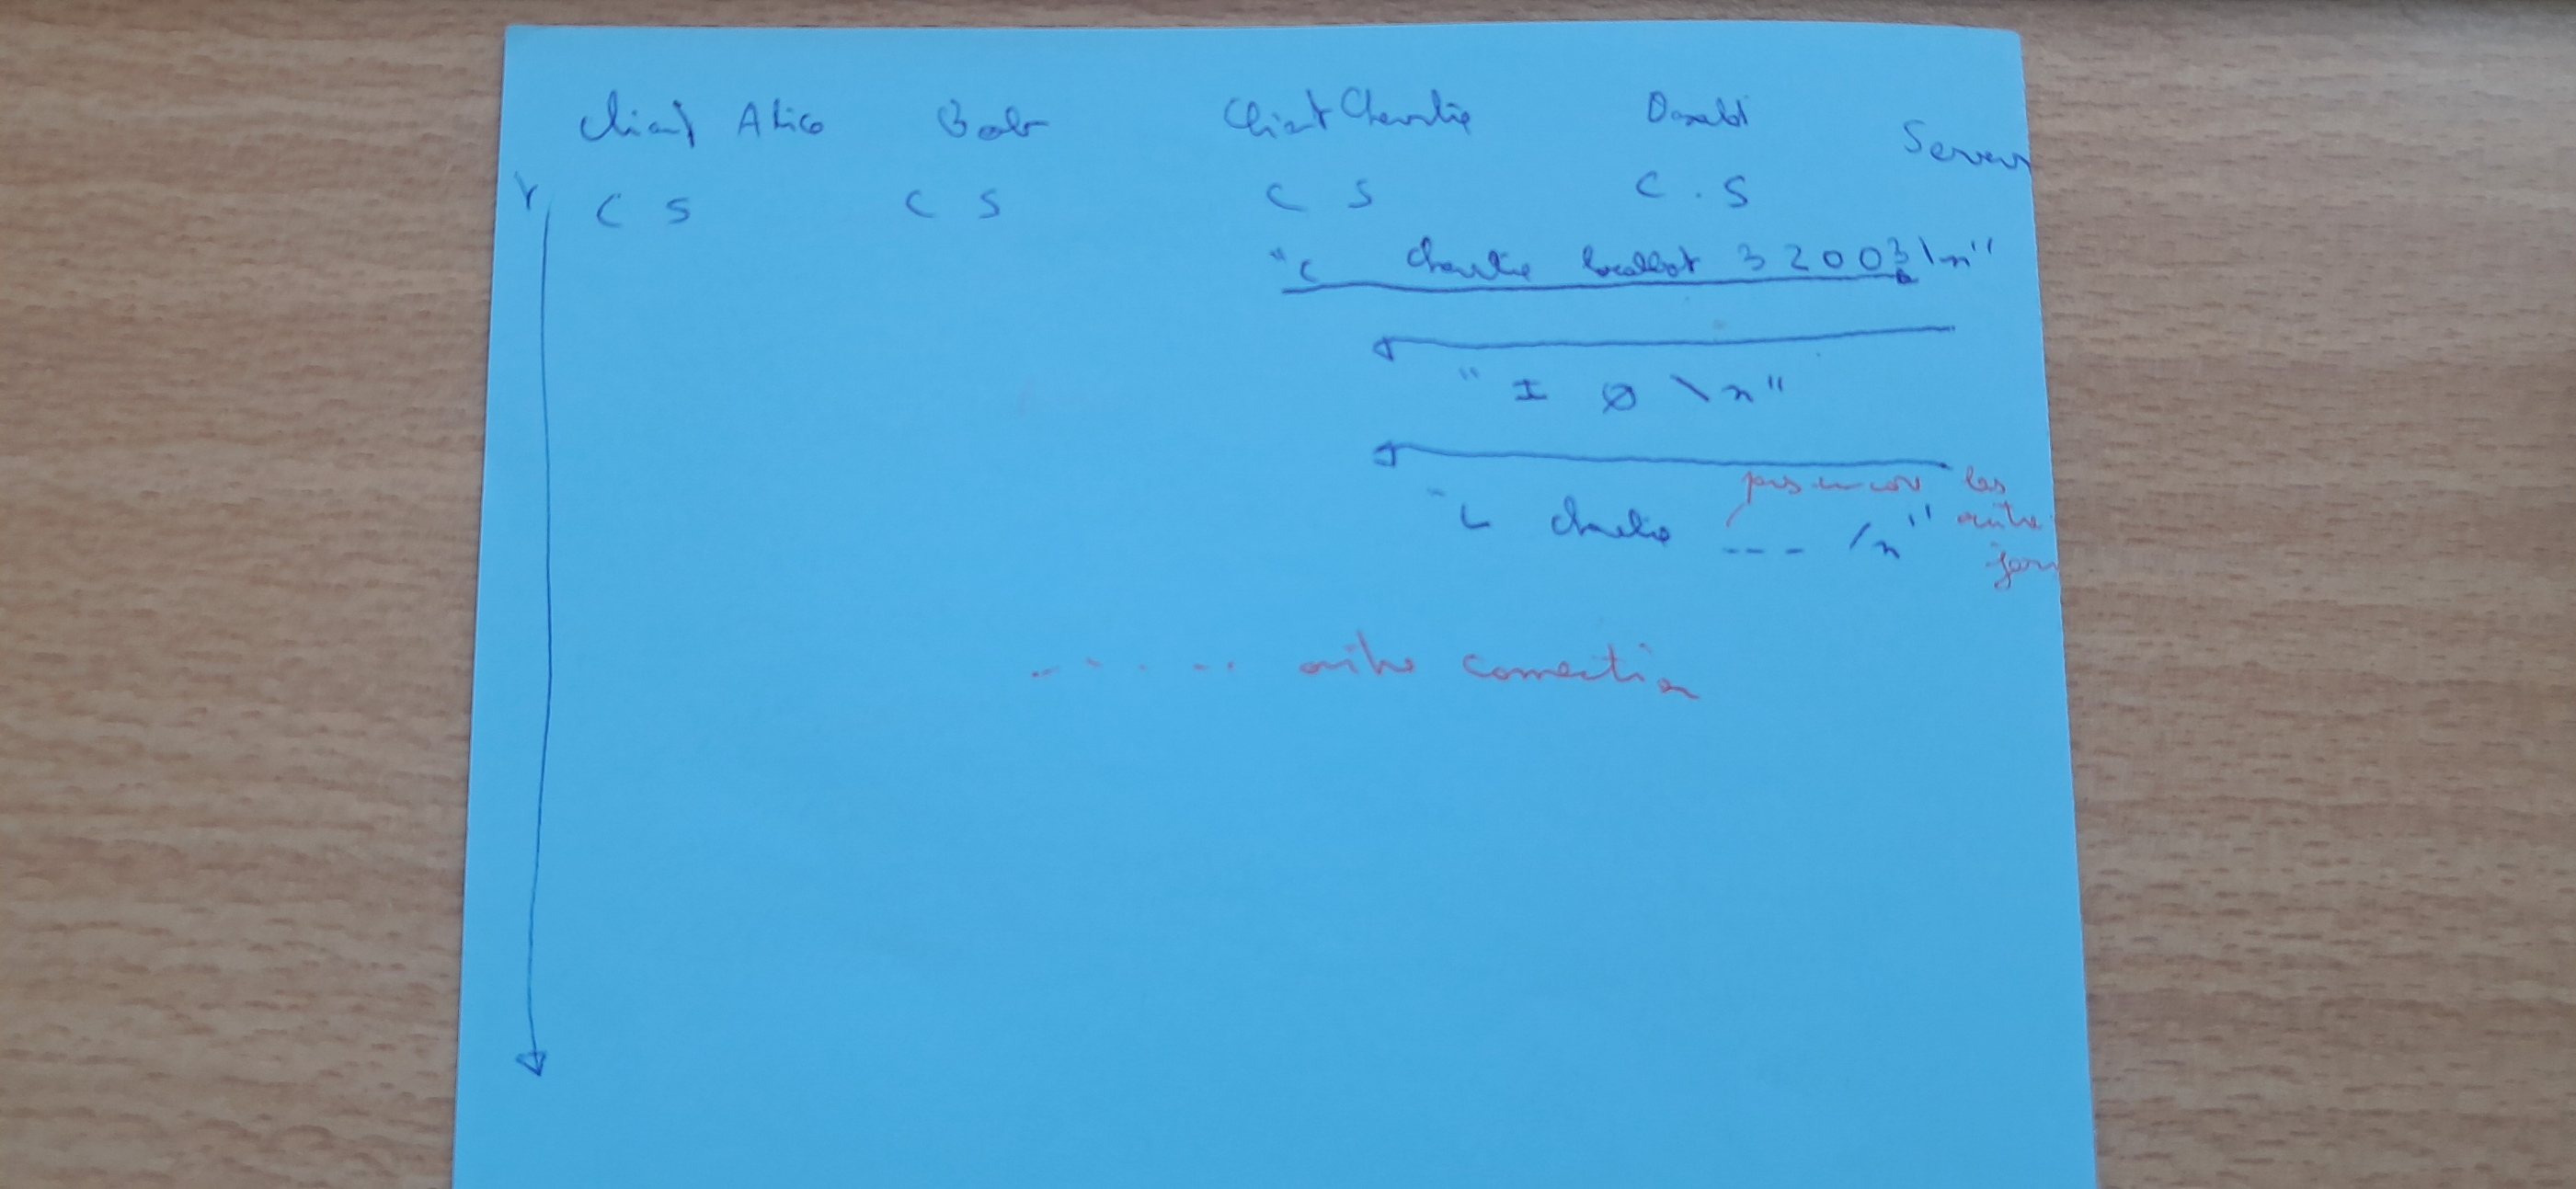 Client Alice Bob Client Charlie Donald Serveur
C S C S C S C . S
"C Charlie localhost 32003\n"
"I Ø \n"
pas encore les
"L Charlie --- /n" autre
..... autre connection